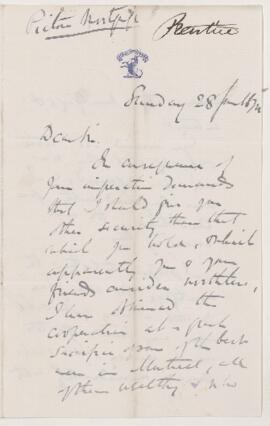 Picture Mortgage
Prentice
Sunday 28 Jun 1874
Dear Sir
In consequence of
your imperative demands
that I should give you
other security than that
which you hold, & which
apparently you & your
friends consider worthless,
I have obtained the
cooperation at a great
sacrifice of some of the best
men in Montreal, all
of them wealthy & who